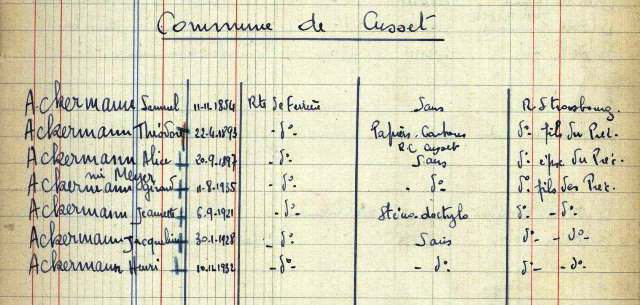 Commune de Cusset
Ackermann Samuel 11-11-1854 Rte de Ferrière Sans R. Strasbourg.
Ackermann Théodore 22-4-1893 -d°- Papiers. Cartons d° fils du Préc.
R.C. Cusset
Ackermann Alice 20-9-1897 -d°- Sans d° épse du Préc.
née Meyer
Ackermann Girard 11-8-1935 -d°- - d°- d° fils des Préc.
Ackermann Jeannette 6-9-1921 -d°- Sténo-dactylo d° - d°-
Ackermann Jacqueline 30-1-1928 -d°- Sans d° - d°-
Ackermann Henri 10-11-1932 -d°- - d°- d° - d°-